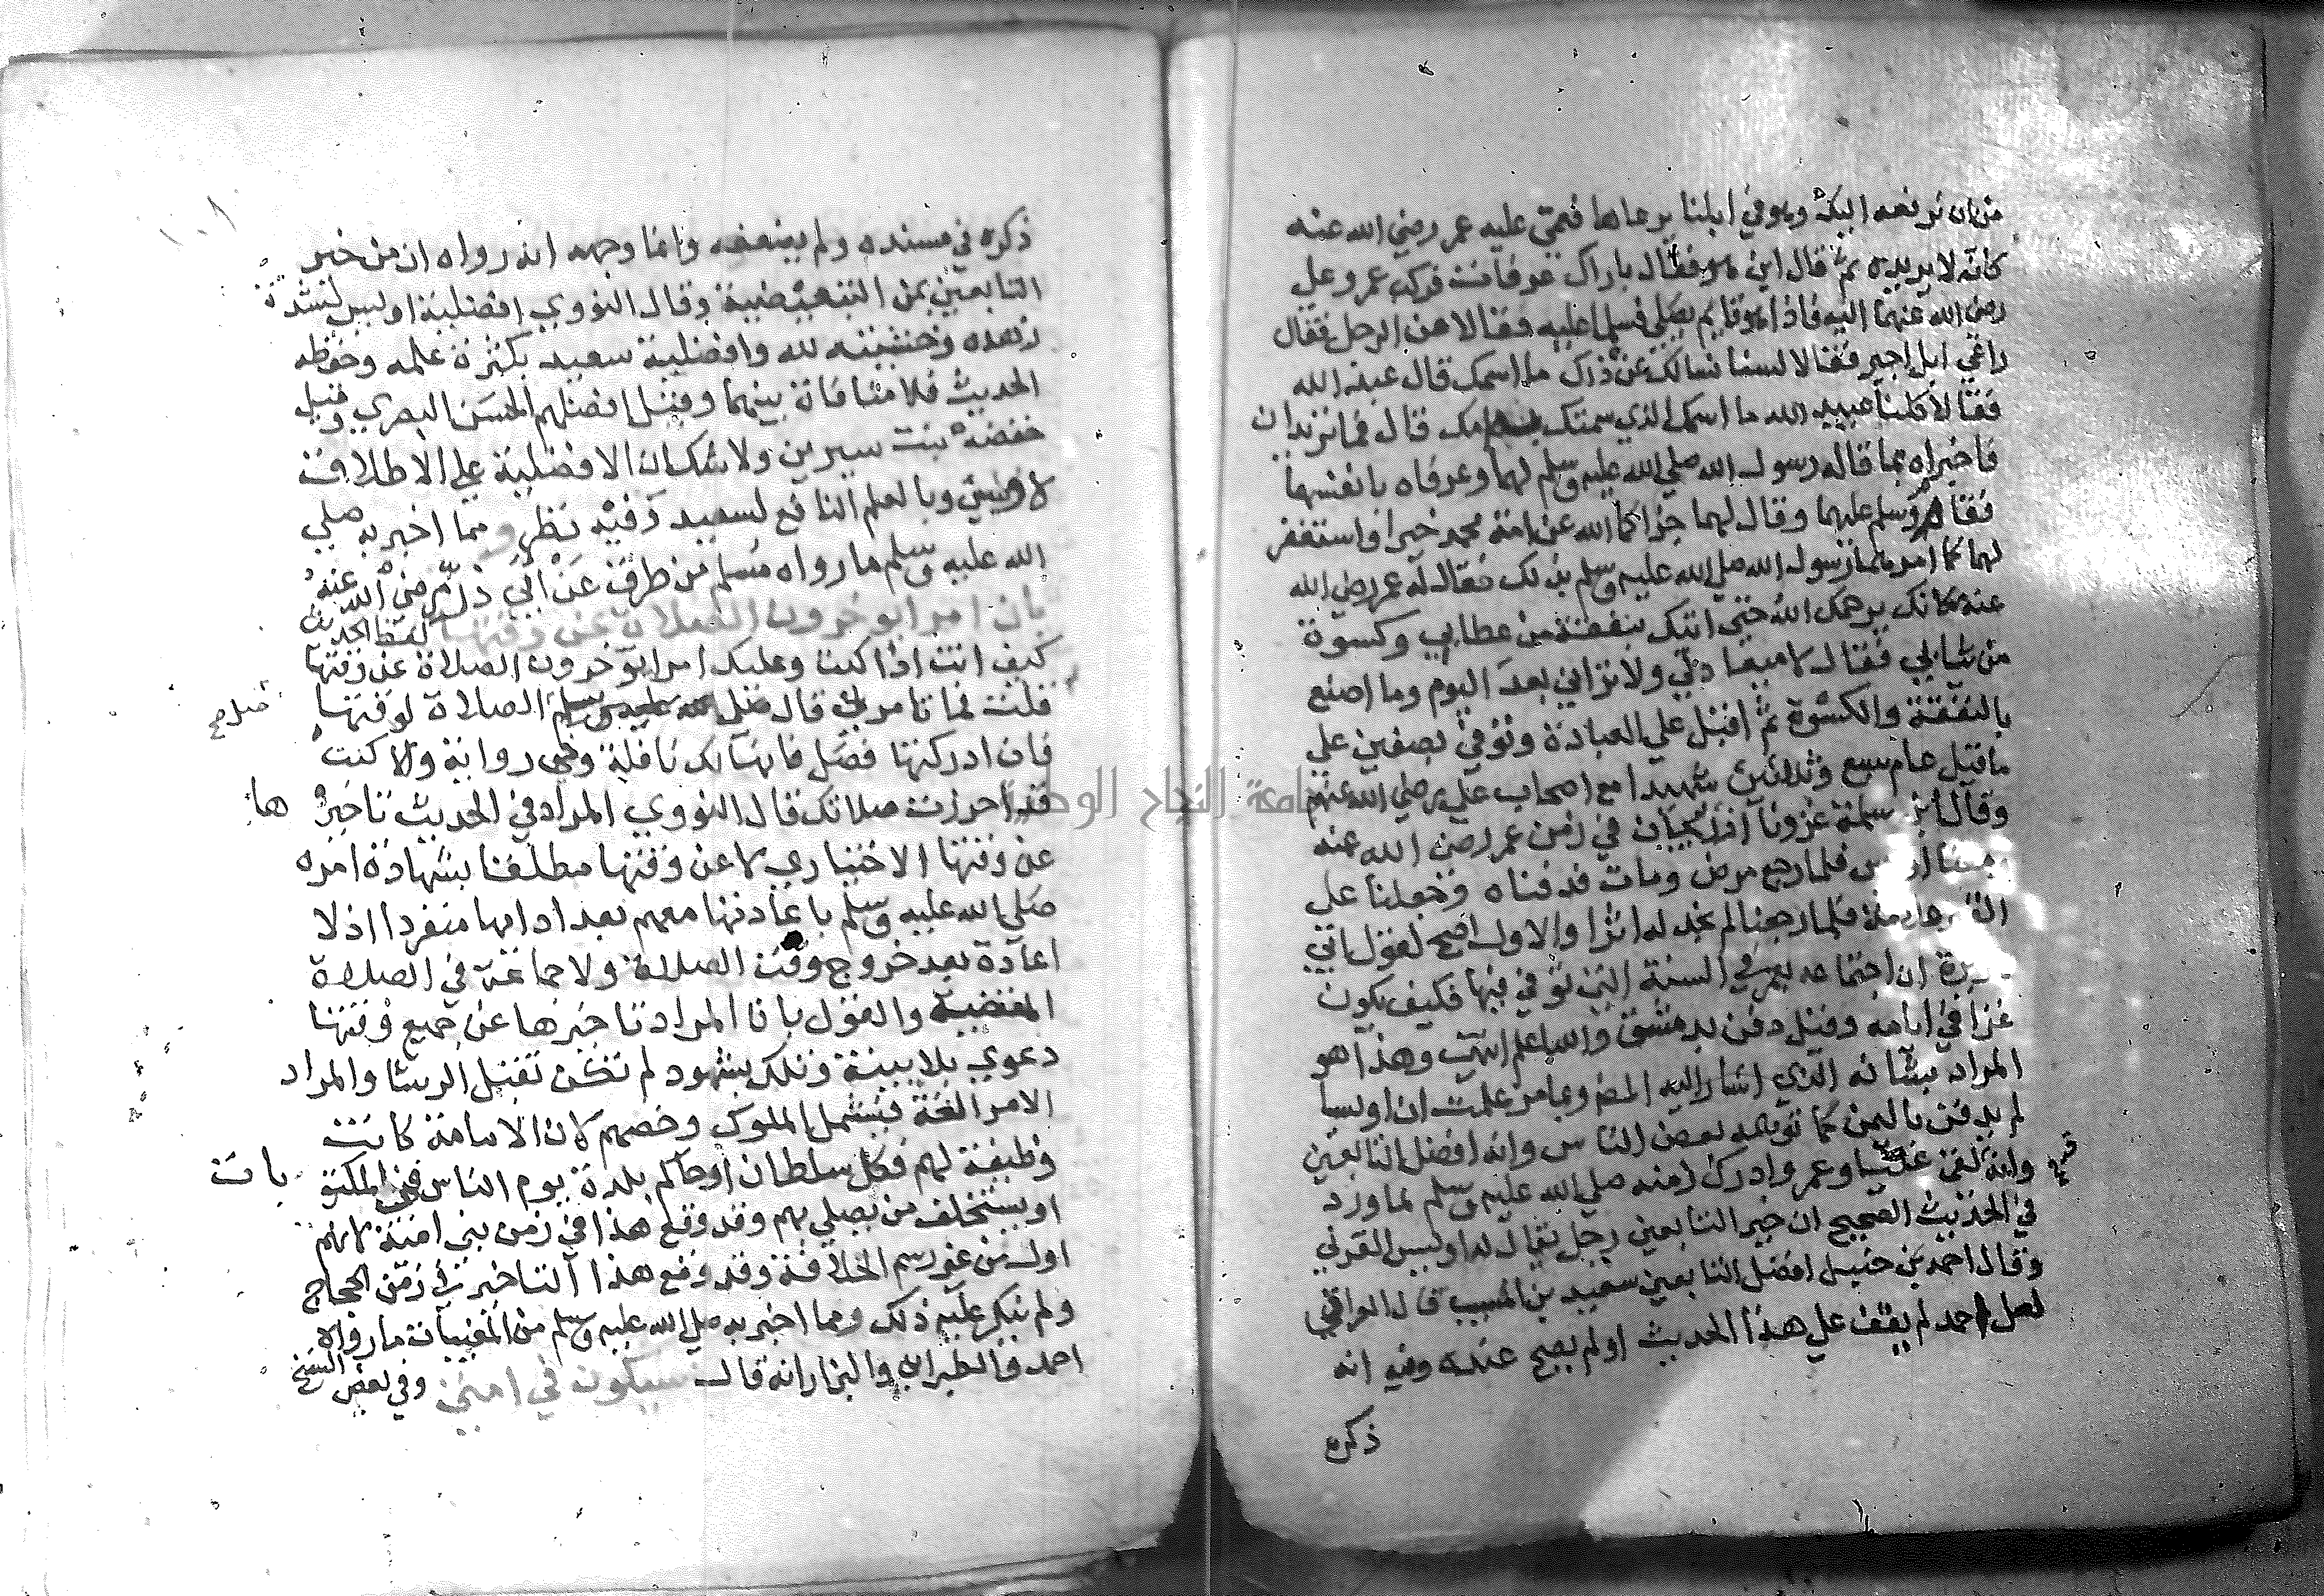 من ان نرفعه اليك وهو في ابلنا يرعاها فعمي عليه عمر رضي الله عنه
كانه لا يريده ثم قال اين هو فقال باراك عرفات فركب عمر وعلي
رضي الله عنهما اليه فاذا هو قايم يصلي فسلما عليه فقالا من الرجل فقال
راعي ابل اجير فقالا لسنا نسالك عن ذلك ما اسمك قال عبد الله
فقالا كلنا عبيد الله ما اسمك الذي سمتك به امك قال فما تريدان
فاخبراه بما قاله رسول الله صلي الله عليه وسلم لهما وعرفاه بانفسهما
فقام وسلم عليهما وقال لهما جزاكما الله عن امة محمد خيرا واستغفر
لهما كما امرهما رسول الله صلي الله عليه وسلم بذلك فقال له عمر رضي الله
عنه مكانك يرحمك الله حتي اتيك بنفقة من عطايي وكسوة
من ثيابي فقال لا ميعاد ولا تراني بعد اليوم وما اصنع
بالنفقة والكسوة ثم اقبل علي العبادة وتوفي بصفين علي
ما قيل عام سبع وثلاثين شهيدا مع اصحاب علي رضي الله عنهم
وقال ابن سلمة غزونا اذربيجان في زمن عمر رضي الله عنه
ومعنا اويس فلما رجع مرض ومات فدفناه وجعلنا علي
علامة فلما رجعنا لم نجد له اثرا والاول اصح لقول ابي
ان اجتماعه بعمر في السنة التي توفي فيها فكيف يكون
غزا في ايامه وقيل دفن بدمشق والله اعلم انتهي وهذا هو
المراد بشانه الذي اشار اليه المص وبما مر علمت ان اويسا
لم يدفن باليمن كما توهمه بعض الناس وانه افضل التابعين
وانه لقي عليا وعمر وادرك زمنه صلي الله عليه وسلم لما ورد
في الحديث الصحيح ان خير التابعين رجل يقال له اويس القرني
وقال احمد بن حنبل افضل التابعين سعيد بن المسيب قال العراقي
لعل احمد لم يقف علي هذا الحديث او لم يصح عنده وفيه انه
ذكره
١٠١
ذكره في مسنده ولم يضعفه وانما وجهه انه رواه ان من خير
التابعين بمن التبعيضية وقال النووي افضلية اويس لشدة
زهده وخشيته لله وافضلية سعيد بكثرة علمه وحفظه
الحديث فلا منافاة بينهما وقيل افضلهم الحسن البصري وقيل
حفصة بنت سيرين ولا شك ان الافضلية علي الاطلاق
لاويس وبالعلم النافع لسعيد وفيه نظر ومما اخبر به صلي
الله عليه وسلم ما رواه مسلم من طرق عن ابي ذر رضي الله عنه
بان امرا يوخرون الصلاة عن وقتها لفظ الحديث
كيف انت اذا كنت وعليك امرا يوخرون الصلاة عن وقتها
قلت فما تامرني قال صل الصلاة لوقتها
صل صح
فان ادركتها فصل فانها لك نافلة وفي رواية والا كنت
قد احرزت صلاتك قال النووي المراد في الحديث تاخيرها
عن وقتها الاختياري لا عن وقتها مطلقا بشهادة امره
صلي الله عليه وسلم باعادتها معهم بعد ادايها منفردا اذ لا
اعادة بعد خروج وقت الصلاة ولا جماعة في الصلاة
المقضية والقول بان المراد تاخيرها عن جميع وقتها
دعوي بلا بينة وتلك شهود لم تكن تقبل الرشا والمراد
الامر الغة فيشمل الملوك وخصهم لان الامامة كانت
وظيفة لهم فكل سلطان او حاكم بلدة يوم الناس في المكتوبات
او يستخلف من يصلي بهم وقد وقع هذا في زمن بني امية لانهم
اول من غير رسم الخلافة وقد وقع هذا التاخير في زمن الحجاج
ولم ينكر عليه ذلك ومما اخبر به صلي الله عليه وسلم من المغيبات ما رواه
احمد والطبراني والبزار انه قال سيكون في امتي وفي بعض النسخ
جامعة النجاح الوطنية